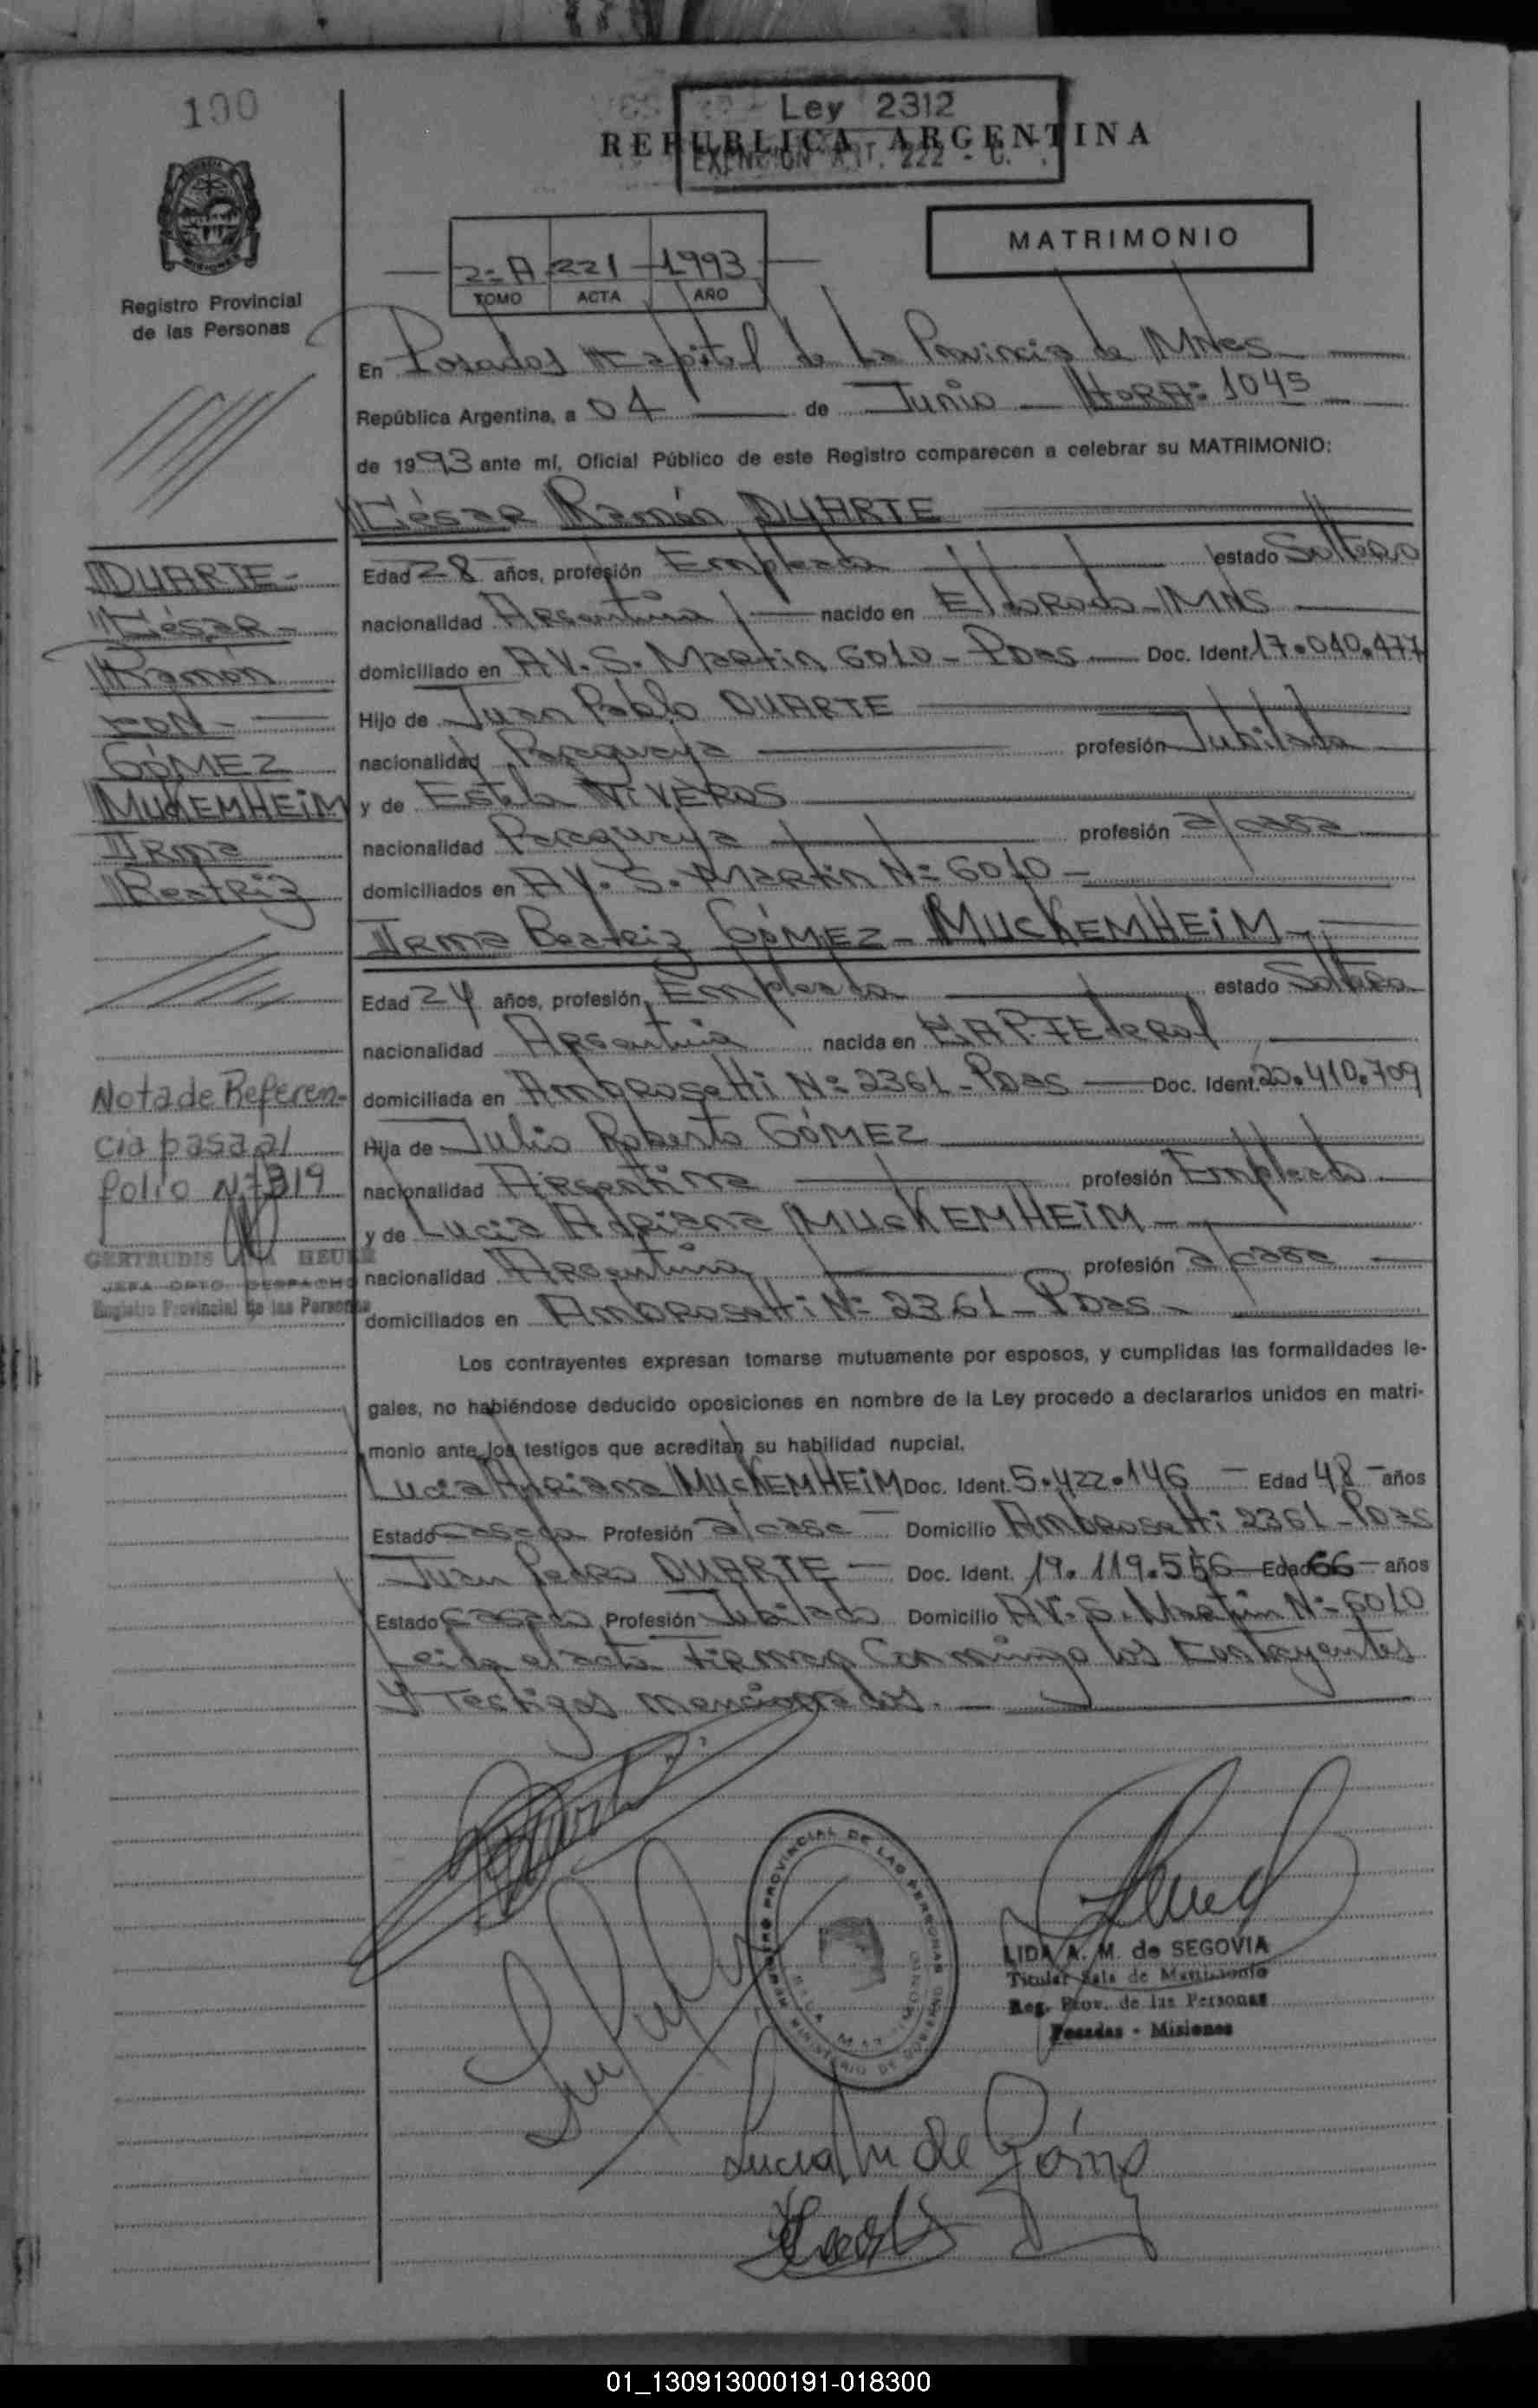 190
Ley 2312
REPUBLICA ARGENTINA
EXENCION ART. 222 - C.
MATRIMONIO
2=A 221 1993
TOMO ACTA AÑO
Registro Provincial
de las Personas
En Posadas Capital de La Provincia de MNes
República Argentina, a 04 de Junio - HORA: 1045
de 1993 ante mí, Oficial Público de este Registro comparecen a celebrar su MATRIMONIO:
César Ramón DUARTE
Edad 28 años, profesión Empleado estado Soltero
nacionalidad Argentina nacido en Eldorado - MNS
domiciliado en AV. S. Martin 6010 - PDAS Doc. Ident. 17.040.477
Hijo de Juan Pablo DUARTE
nacionalidad Paraguaya profesión Jubilado
y de Estela VIVEROS
nacionalidad Paraguaya profesión a/casa
domiciliados en AV. S. Martin N= 6010 -
Irma Beatriz GÓMEZ - MUCKEMHEiM -
Edad 24 años, profesión, Empleada estado Soltera
nacionalidad Argentina nacida en CAP. FEderal
domiciliada en Ambrosetti N= 2361 - PDas Doc. Ident. 20.410.709
Hija de Julio Roberto GÓMEZ
nacionalidad Argentina profesión Empleado
y de Lucia Adriana MUCKEMHEiM -
nacionalidad Argentina profesión a/casa
domiciliados en Ambrosetti N= 2361 - PDas -
Los contrayentes expresan tomarse mutuamente por esposos, y cumplidas las formalidades le-
gales, no habiéndose deducido oposiciones en nombre de la Ley procedo a declararlos unidos en matri-
monio ante los testigos que acreditan su habilidad nupcial.
Lucia Adriana MUCKEMHEiM Doc. Ident. 5.422.146 - Edad 48 - años
Estado Casada Profesión a/casa - Domicilio Ambrosetti 2361 - PDas
Juan Pedro DUARTE - Doc. Ident. 19.119.556 Edad 66 - años
Estado Casado Profesión Jubilado Domicilio AV. S. Martin N= 6010
Leida el acta Firman Conmingo los Contrayentes
Y Testigos mencionados. -
DUARTE -
César -
Ramón
CON -
GÓMEZ
MUCKEMHEiM
IRma
Beatriz
Nota de Referen-
cia pasa al
folio N= 319
GERTRUDIS
JEFA DPTO. DESPACHO
Registro Provincial de las Personas
REGISTRO PROVINCIAL DE LAS PERSONAS
MINISTERIO DE GOBIERNO
LIDA A. M. de SEGOVIA
Titular Sala de Matrimonio
Reg. Prov. de las Personas
Posadas - Misiones
Lucia M de Gómez
01_130913000191-018300